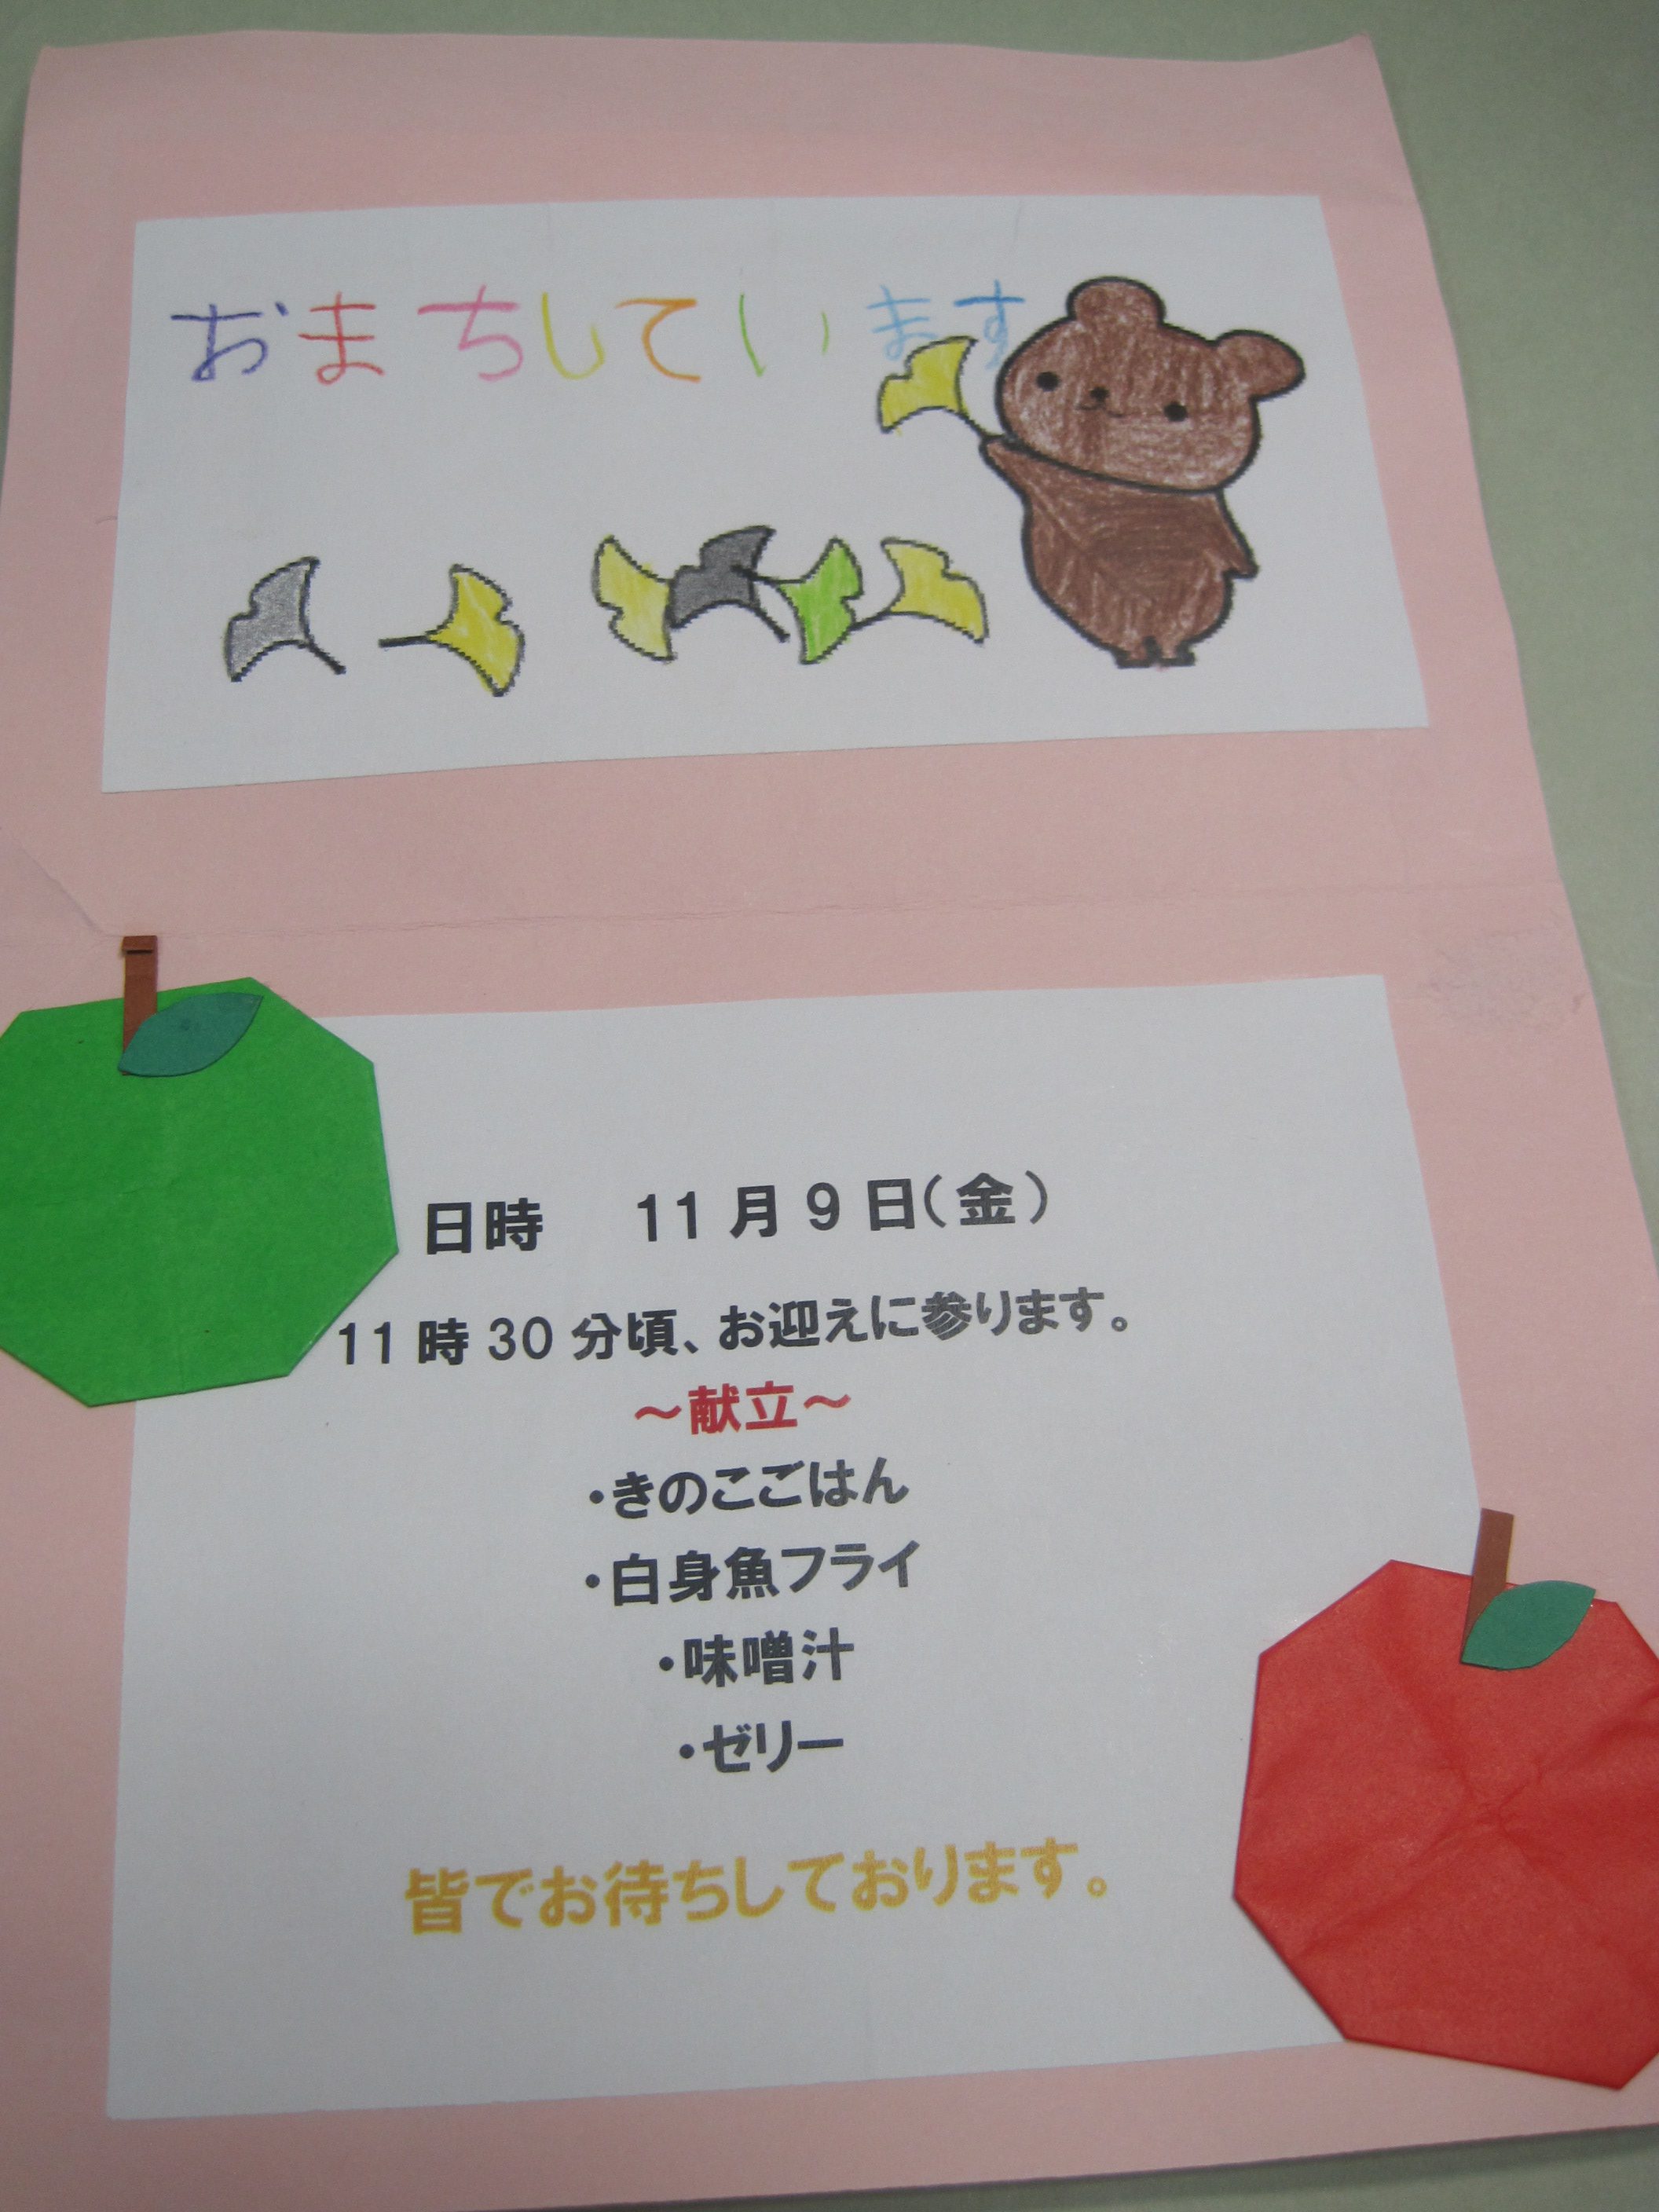 おまちしています
日時　11月9日(金)
11時30分頃、お迎えに参ります。
～献立～
・きのこごはん
・白身魚フライ
・味噌汁
・ゼリー
皆でお待ちしております。